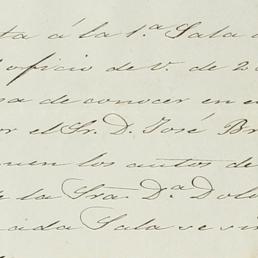 ta á la 1.ª Sala
oficio de V. de 2
sa de conocer en e
or el Sr. D. José Br
quen los autos de
e la Sra. D.ª Dol
cada Sala se sir